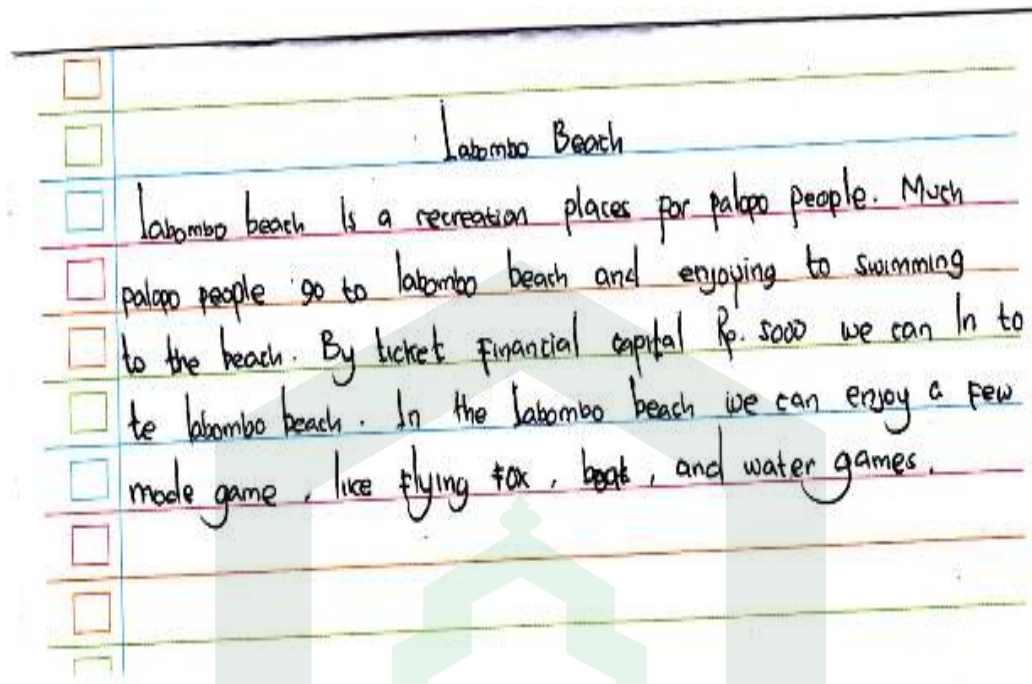 Labombo Beach
Labombo beach is a recreation places for palopo people. Much
palopo people go to labombo beach and enjoying to swimming
to the beach. By ticket financial capital Rp. 5000 we can in to
te labombo beach. In the labombo beach we can enjoy a few
mode game, like flying fox, boat, and water games.